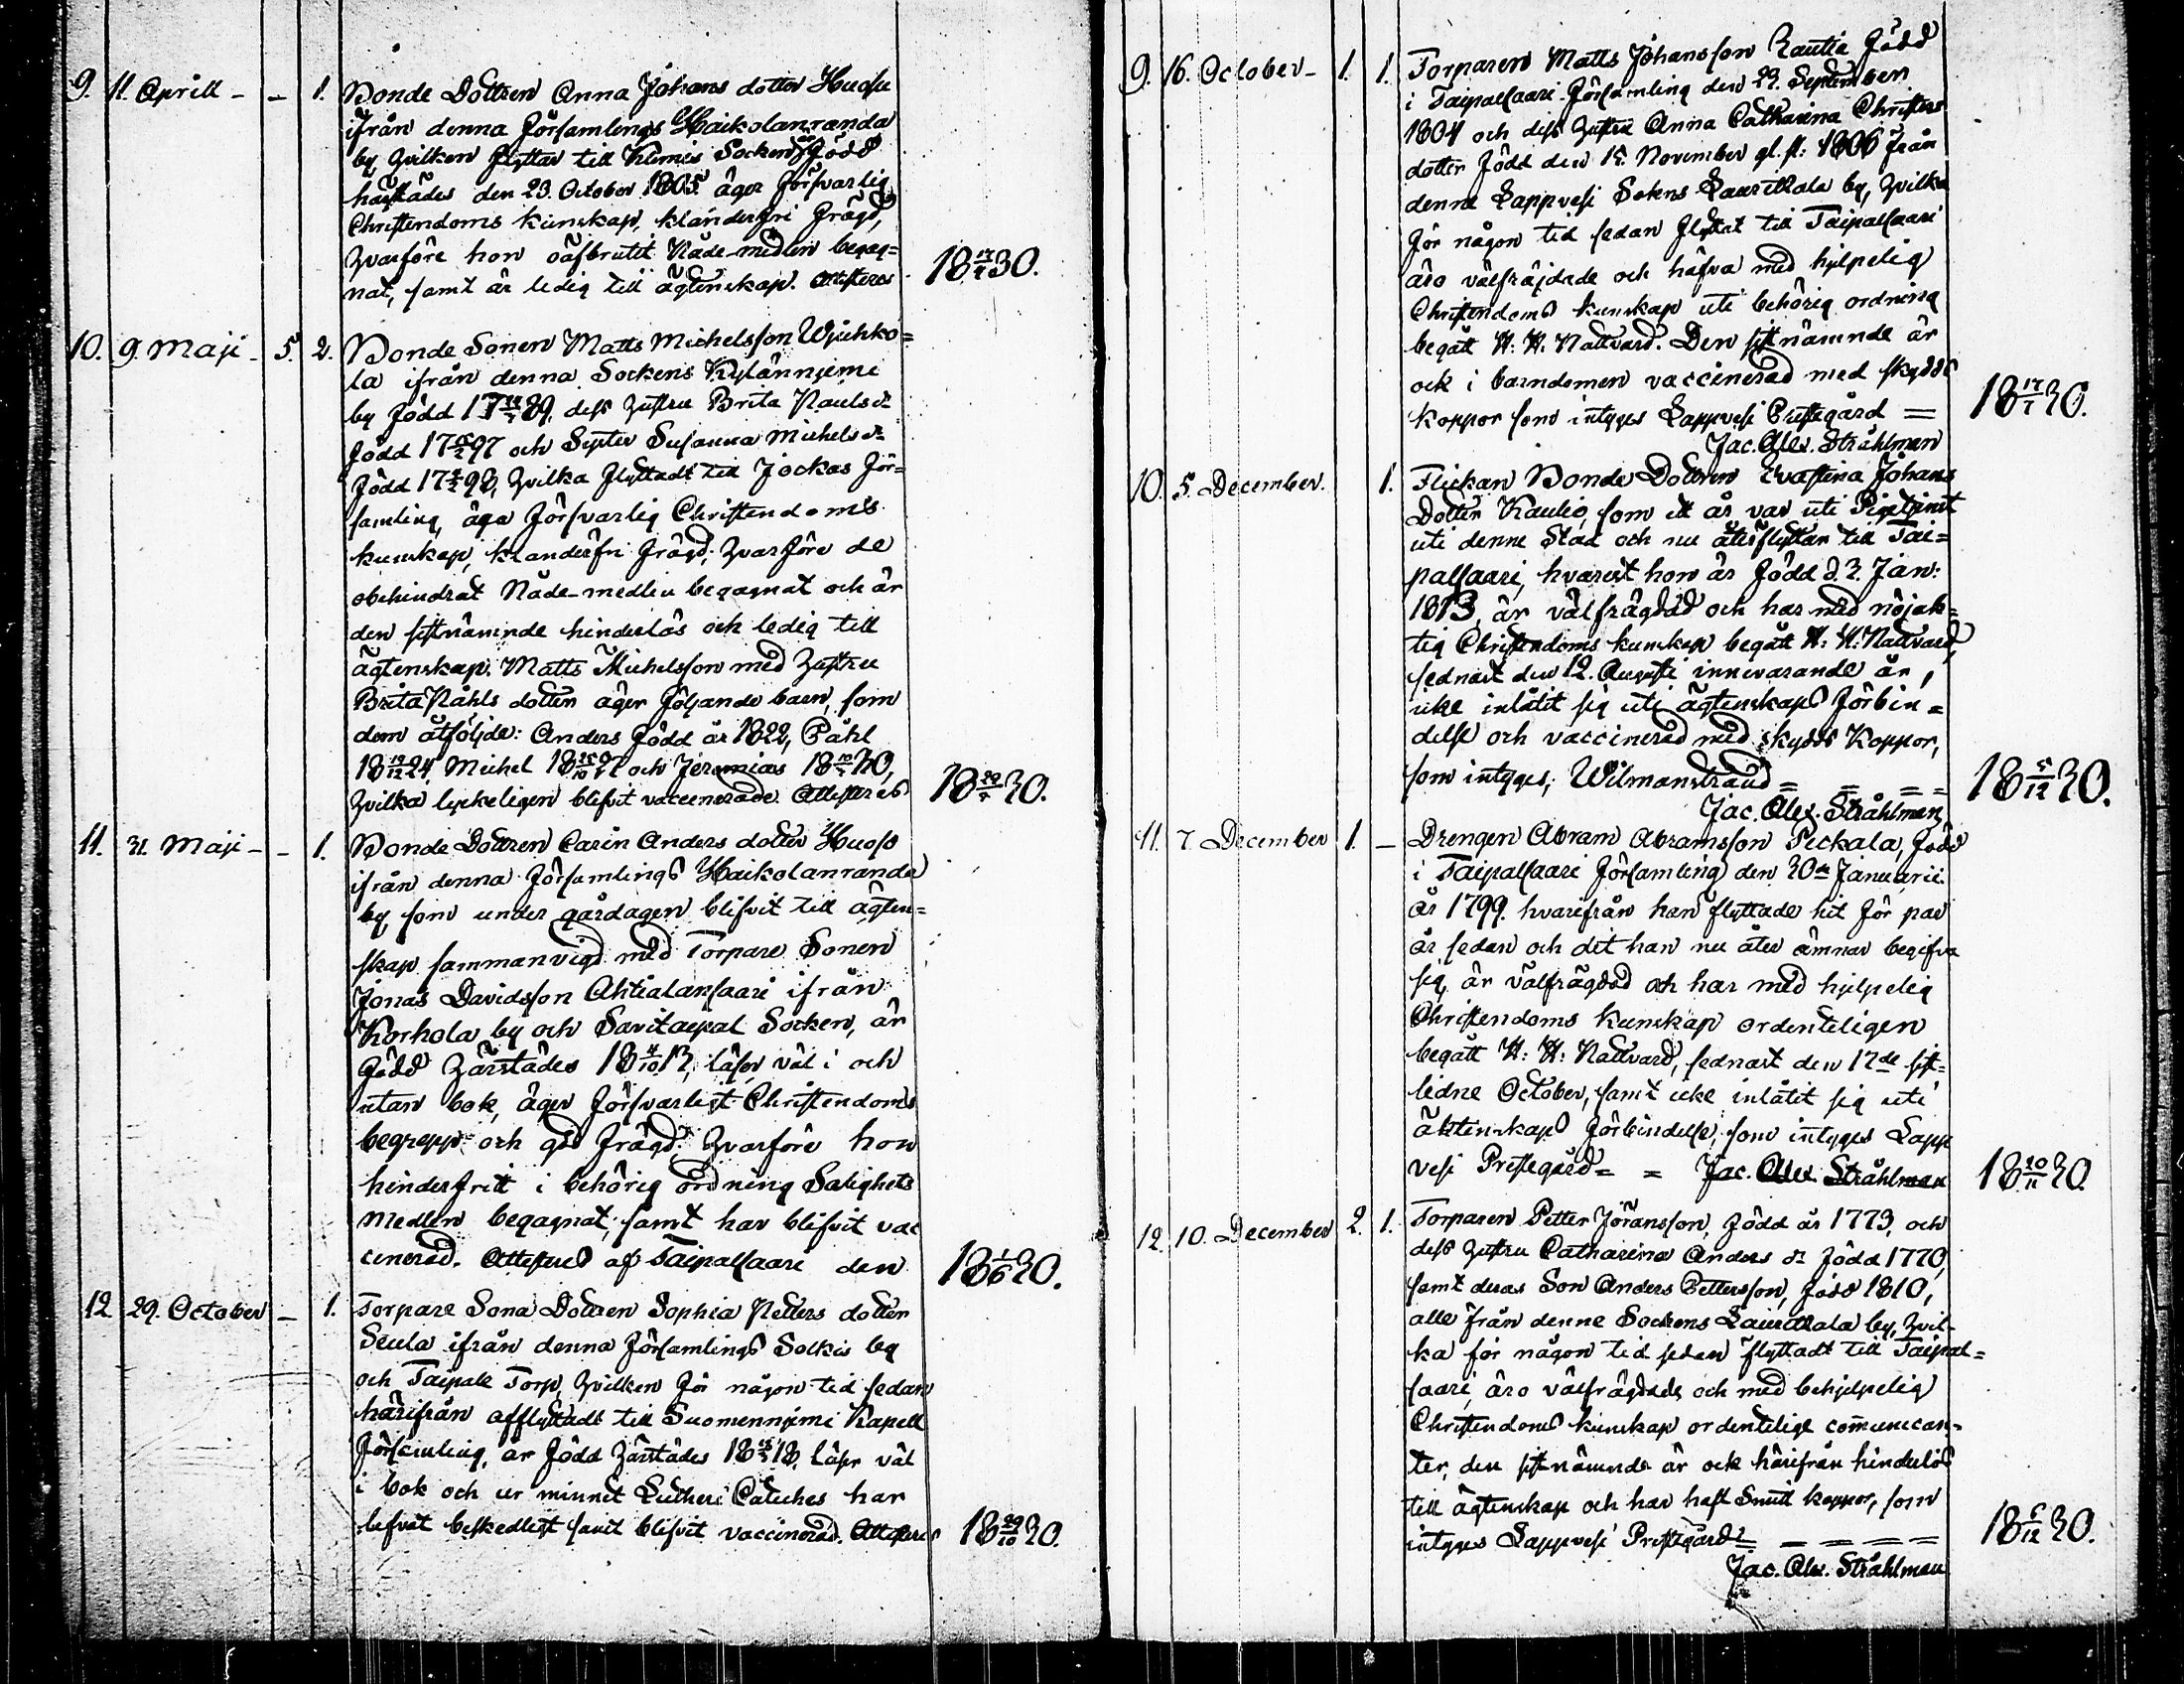 9. 11. Aprill - - 1. Bonde Dottren Anna Johans dotter Huosu
ifrån denna församlings Haikolanranda
by hvilken flyttar till Klemis Socken, född
härstädes den 23. October 1805. äger försvarlig
Christendoms kunskap, klanderfri frägd,
hvarföre hon oafbrutit Nåde-medlen begag=
nat, samt är ledig till ägtenskap. Attesteras
18 30.
10. 9. Maji - 5. 2. Bonde Sonen Matts Michelsson Wjuhko=
la ifrån denna Sockens Kylänniemi
by född 17 89, dess hustru Brita Paulsdr
född 17 97 och Syster Susanna Michelsdr
född 17 98, hvilka flyttadt till Jockas för=
samling, äga försvarlig Christendoms
kunskap, klanderfri frägd; hvarföre de
obehindrat Nåde-medlen begagnat och är
den sistnämnde hinderlös och ledig till
ägtenskap. Matts Michelsson med hustru
Brita Påhls dotter äger följande barn, som
dem åtfölja: Anders född år 1822, Påhl
18 19/12 24, Michel 18 och Jeremias 18 30,
hvilka lyckeligen blifvit vaccinerade. Attesteras
18 30.
11. 31. Maji - - 1. Bonde Dottren Carin Anders dotter Huoso
ifrån denna församlings Haikolanranda
by, som under gårdagen blifvit till ägten=
skap sammanvigd med Torpare Sonen
Jonas Davidsson Ahtialansaari ifrån
Korhola by och Savitaipal Socken, är
född härstädes 18 13, läser väl i och
utan bok, äger försvarligt Christendoms
begrepp och god frägd. hvarföre hon
hinderfritt i behörig ordning Salighets
medlen begagnat, samt har blifvit vac
cinerad. Attesteras af Taipalsaari den
18 1/6 30.
12 29. October - 1. Torpare Sona Dottren Sophia Petters dotter
Seula ifrån denna församlings Solkis by
och Taipale Torp, hvilken för någon tid sedan
härifrån afflyttadt till Suomenniemi Kapell
församling, är född härstädes 18 18, läser väl
i bok och ur minnet Lutheri Cateches har
lefvat beskedligt samt blifvit vaccinerad. Attesteras
18 29/10 30.
9. 16. October - 1. 1. Torparen Matts Johansson Rautia född
i Taipalsaari församling den 29. September
1804 och dess hustru Anna Catharina Christers
dotter född den 15. November gl. st: 1806 från
denne Lappvesi Sokns Lauritsala by, hvilka
för någon tid sedan flyttat till Taipalsaari
äro välfräjdade och hafva med hjelpelig
Christendoms kunskap uti behörig ordning
begått H: H: Nattvard. Den sistnämnde är
ock i barndomen vaccinerad med skydds
koppor som intygas Lappvesi Prestegård =
18 17/7 30.
Jac. Alex. Stråhlman
10. 5. December. 1. Flickan Bonde Dottren Evastina Johans
Dotter Kaulio, som ett år var uti Pigtjenst
uti denne Stad och nu återflyttar till Tai=
palsaari, hvarest hon är född d. 2. Jan:
1813, är välfrägdad och har med nöjak=
tig Christendoms kunskap begått H: H: Nattvard,
sednast den 12. Augusti innevarande år,
icke inlåtit sig uti ägtenskaps förbin=
delse och vaccinerad med skydds koppor,
som intygas; Wilmanstrand = = = =
18 5/12 30.
Jac. Alex. Stråhlman
11. 7. December 1. - Drengen Abram Abramsson Peckala, född
i Taipalsaari församling den 30de Januarii
år 1799. hvarifrån han flyttade hit för par
år sedan och dit han nu åter ämnar begifva
sig, är välfrägdad och har med hjelpelig
Christendoms kunskap ordenteligen
begått H: H: Nattvard, sednast den 17de sist=
ledne October, samt icke inlåtit sig uti
äktenskaps förbindelse; som intygas Lapp
vesi Prestegård = = Jac. Alex. Stråhlman
18 30.
12. 10. December 2. 1. Torparen Petter Jöransson, född år 1773, och
dess hustru Catharina Anders dr född 1770,
samt deras Son Anders Pettersson, född 1810,
alle från denne Sockens Lauritsala by, hvil-
ka för någon tid sedan flyttadt till Taipal=
saari, äro välfrägdade och med behjelpelig
Christendoms kunskap ordentelige communican=
ter, den sistnämnda är ock härifrån hinderlös
till ägtenskap och har haft Smitt koppor, som
intygas Lappvesi Prestegård = - = = = =
18 30.
Jac. Alex. Stråhlman